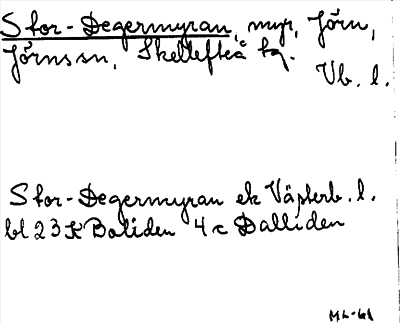 Stor-Degermyran, myr, Jörn,
Jörns sn, Skellefteå kg.
Vb. l.
Stor-Degermyran ek Västerb. l.
bl 23 K Boliden 4c Dalliden